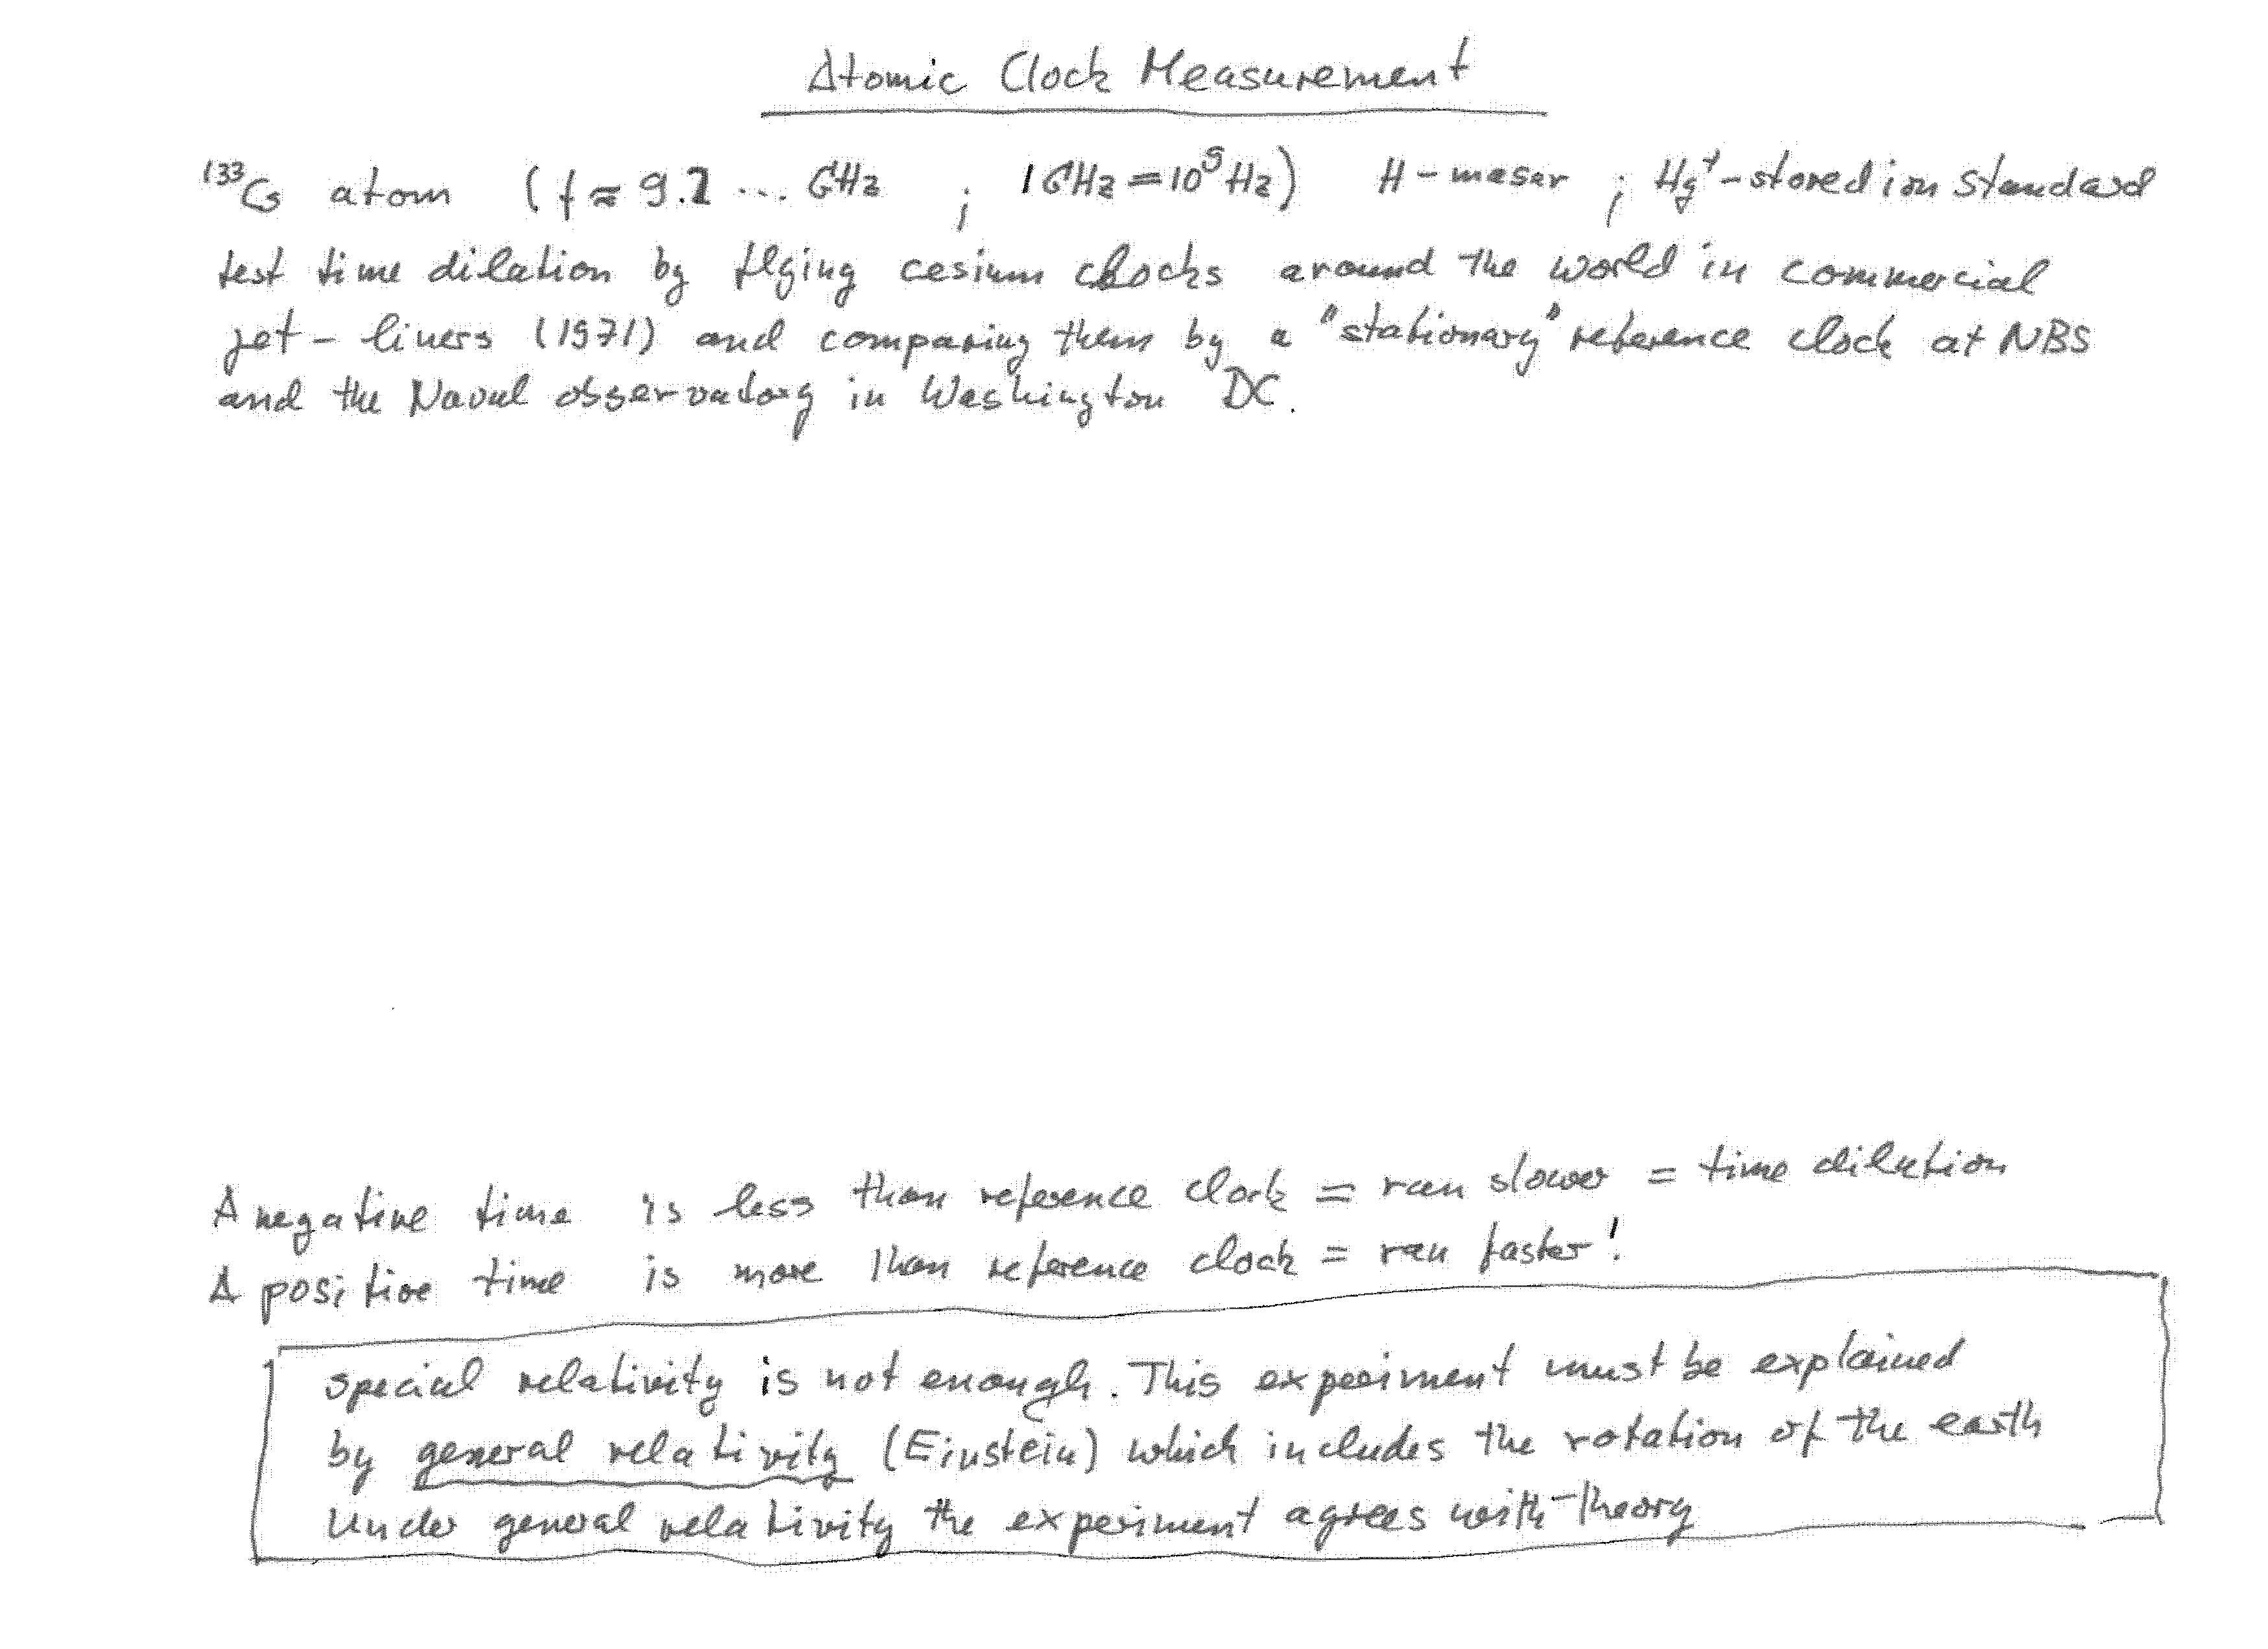 Atomic Clock Measurement
¹³³Cs atom (f ≈ 9.2 ... GHz ; 1 GHz = 10⁹ Hz) H-maser ; Hg⁺-stored ion standard
test time dilation by flying cesium clocks around the world in commercial
jet-liners (1971) and comparing them by a "stationary" reference clock at NBS
and the Naval observatory in Washington DC.
A negative time is less than reference clock = ran slower = time dilation
A positive time is more than reference clock = ran faster!
special relativity is not enough. This experiment must be explained
by general relativity (Einstein) which includes the rotation of the earth
Under general relativity the experiment agrees with theory